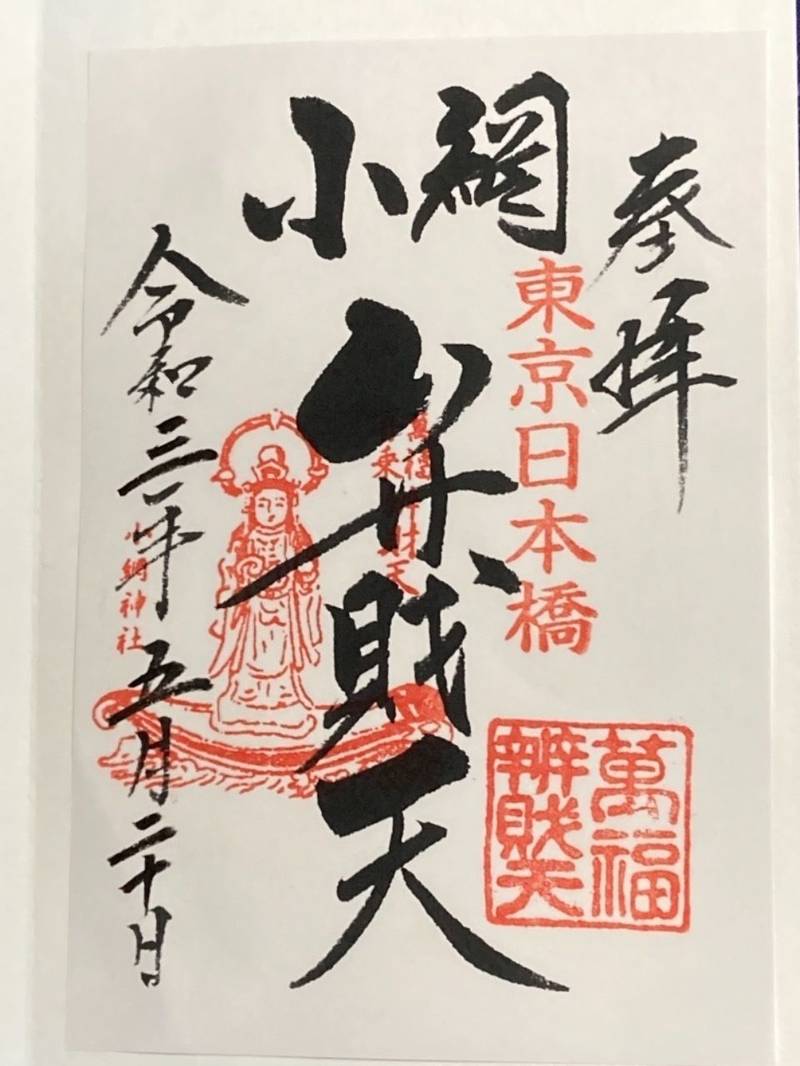 奉拝
東京日本橋
萬福
辨財天
小網
弁財天
小網神社
令和三年五月二十日